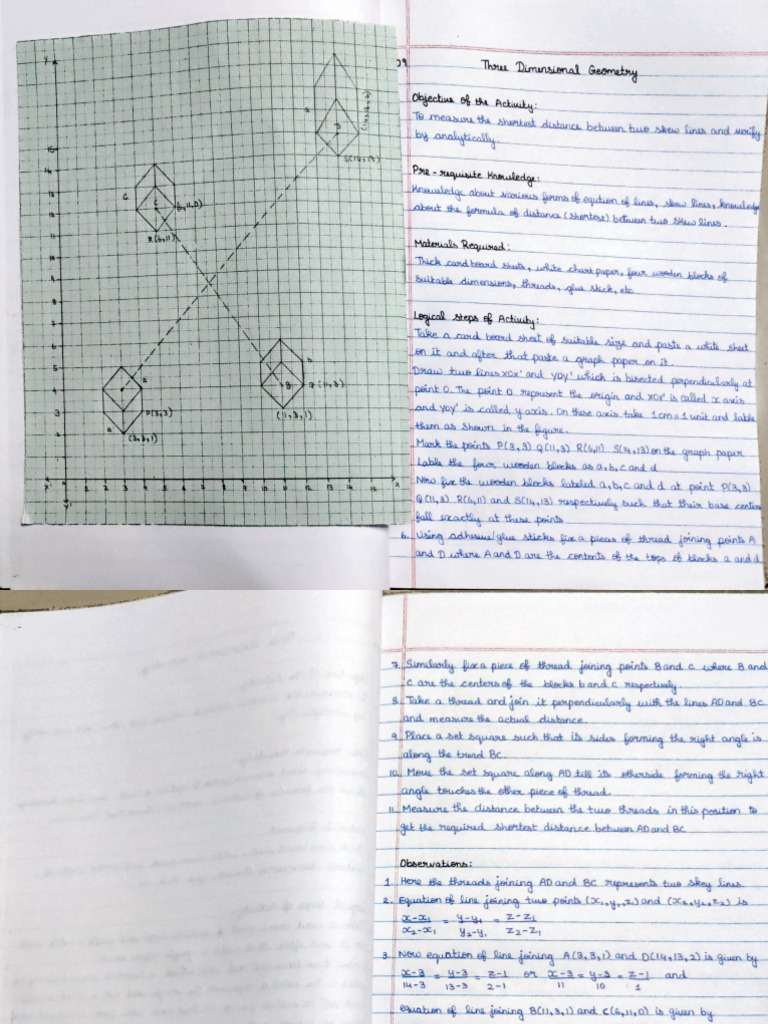 Y
15
14
13
12
11
10
9
8
7
6
5
4
3
2
1
C
c
(6,11,0)
R(6,11)
D
S(14,13)
a
P(3,3)
(3,3,1)
b
B
(11,3)
(11,3,1)
X'
1 2 3 4 5 6 7 8 9 10 11 12 13 14 15
Y'
09
Three Dimensional Geometry
Objective of the Activity:
To measure the shortest distance between two skew lines and verify
by analytically.
Pre-requisite Knowledge:
Knowledge about various forms of eqution of lines, skew lines, knowledge
about the formula of distance (shortest) between two skew lines.
Materials Required:
Thick card board sheets, white chart paper, four wooden blocks of
suitable dimensions, threads, glue stick, etc
Logical steps of Activity:
Take a card board sheet of suitable size and paste a white sheet
on it and after that paste a graph paper on it.
Draw two lines xox' and yoy' which is bisected perpendicularly at
point O. The point O represent the origin and xox' is called x axis
and yoy' is called y axis. On these axis take 1cm=1 unit and lable
them as shown in the figure.
Mark the points P(3,3) Q(11,3) R(6,11) S(14,13) on the graph paper
Lable the four wooden blocks as a, b, c and d
Now fix the wooden blocks labeled a, b, c and d at point P(3,3)
Q(11,3) R(6,11) and S(14,13) respectively such that their base centers
fall exactly at these points
6. Using adhesive/glue sticks fix a pieces of thread joining points A
and D where A and D are the contents of the tops of blocks a and d
7. Similarly fix a piece of thread joining points B and C where B and
C are the centers of the blocks b and c respectively.
8. Take a thread and join it perpendicularly with the lines AD and BC
and measure the actual distance.
9. Place a set square such that its sides forming the right angle is
along the tread BC.
10. Move the set square along AD tell its otherside forming the right
angle touches the other piece of thread.
11. Measure the distance between the two threads in this position to
get the required shortest distance between AD and BC
Observations:
1. Here the threads joining AD and BC represents two skey lines.
2. Equation of line joining two points (x₁,y₁,z₁) and (x₂,y₂,z₂) is
x-x₁/x₂-x₁ = y-y₁/y₂-y₁ = z-z₁/z₂-z₁
3. Now equation of line joining A(3,3,1) and D(14,13,2) is given by
x-3/14-3 = y-3/13-3 = z-1/2-1 or x-3/11 = y-3/10 = z-1/1 and
equation of line joining B(11,3,1) and C(6,11,0) is given by